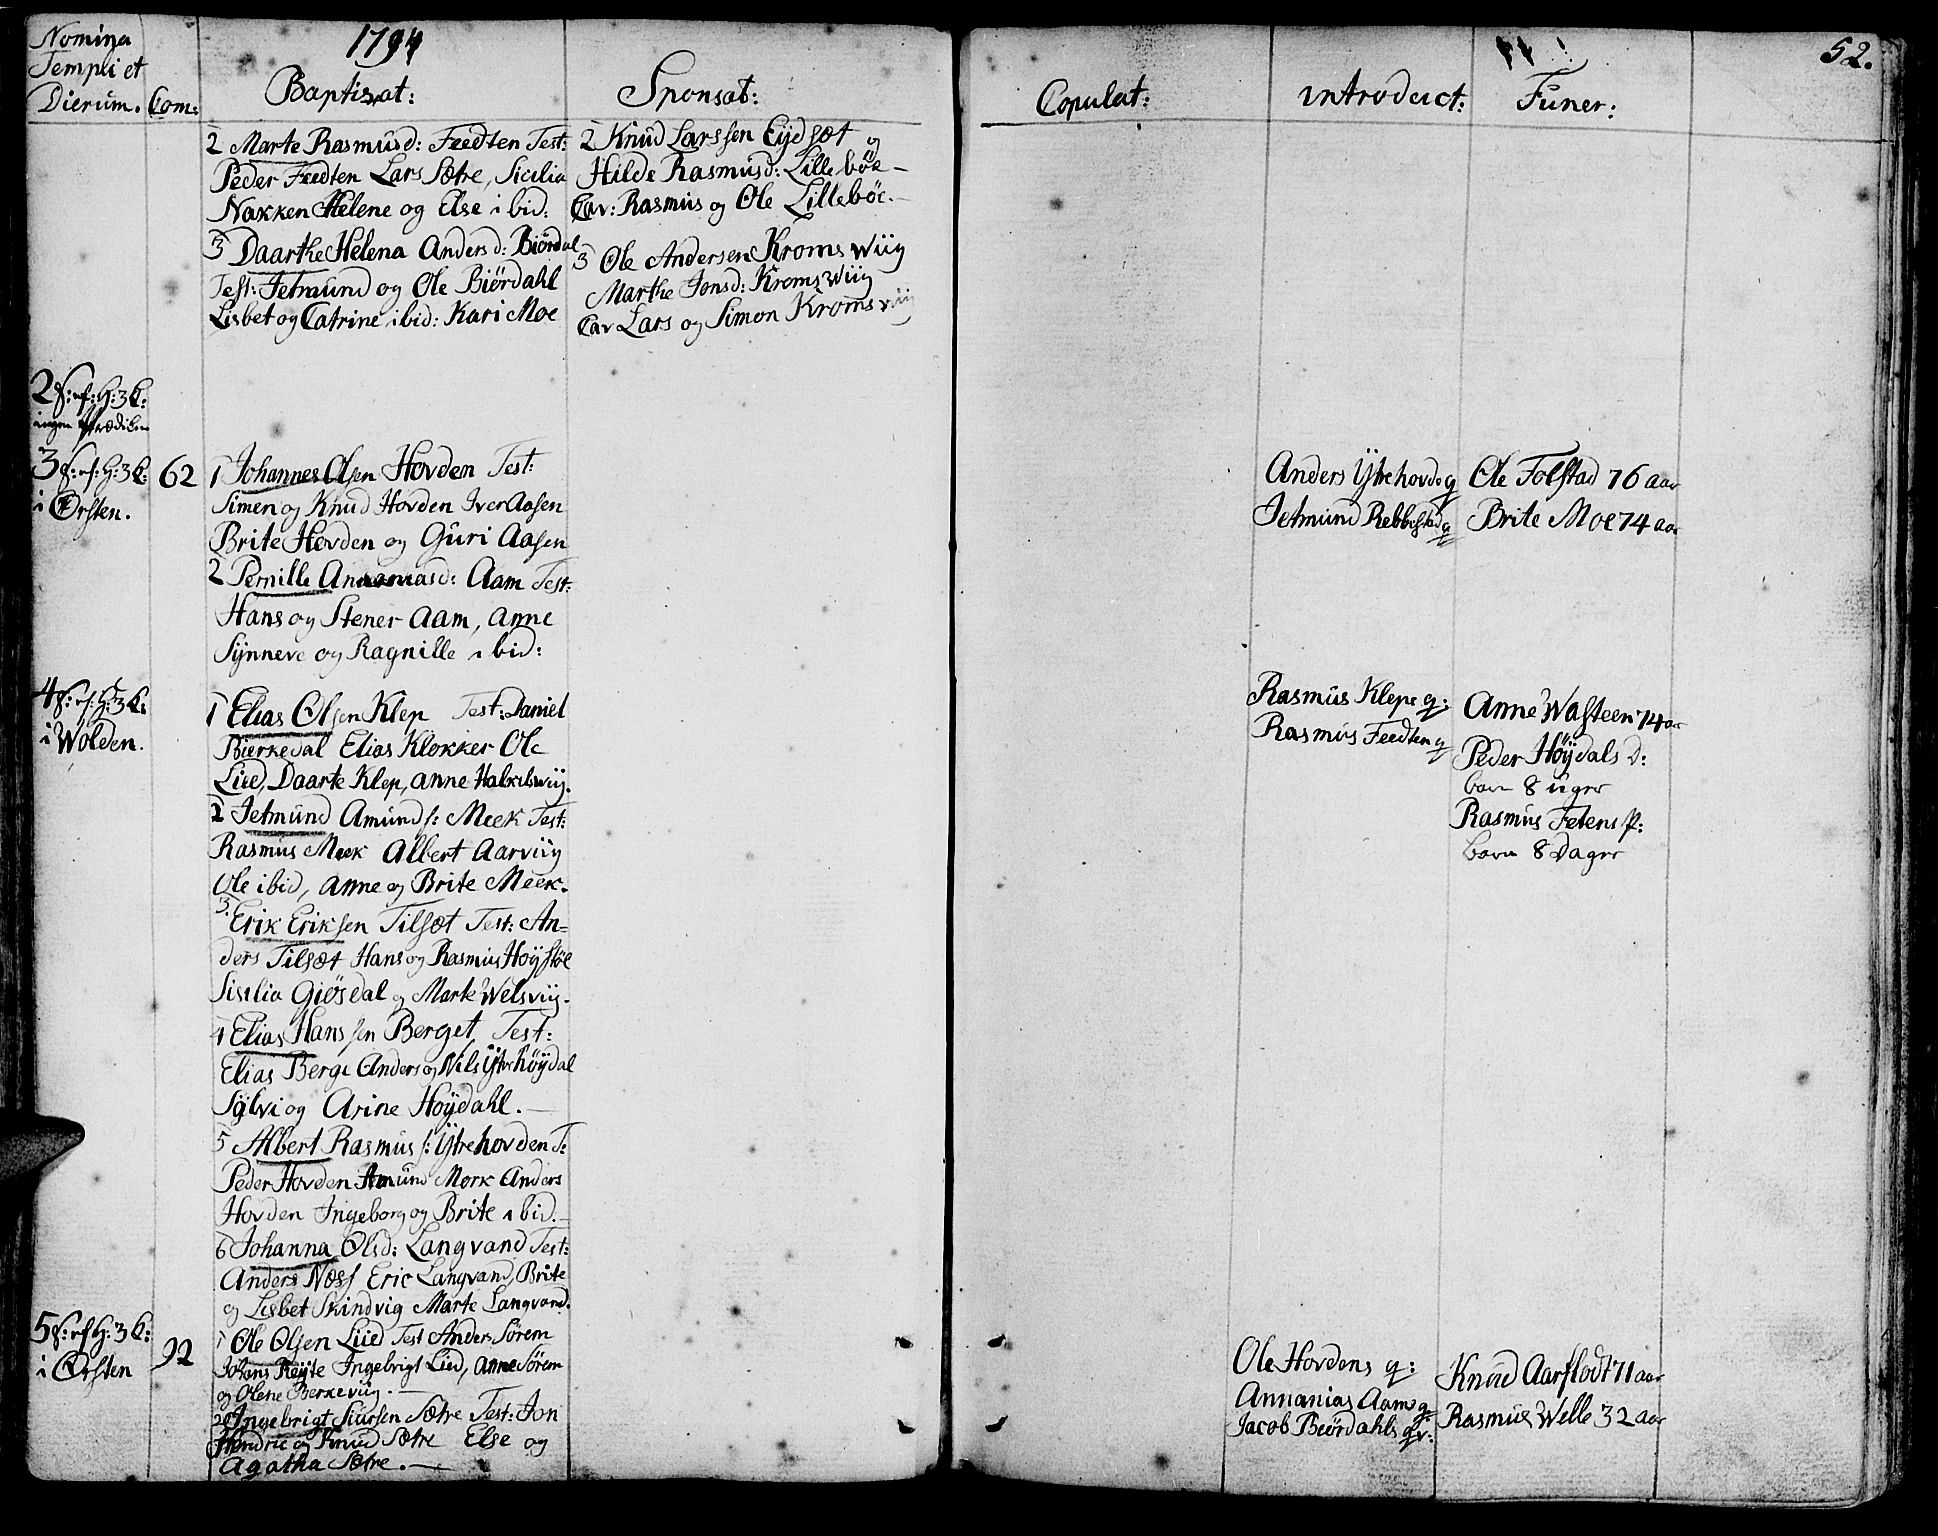 Nomina
Templi et
Dierum. Com:
1794
Baptisat:
Sponsat:
2 Marte Rasmusd: Feedten Test:
Peder Feedten Lars Sætre, Sicilia
Nakken Helene og Else ibid:
3 Daarthe Helena Andersd: Biördal
Test: Jetmund og Ole Biördahl
Lisbet og Catrine ibid: Kari Moe
2 Knud Larssen Eydsæt og
Hilde Rasmusd: Lilleböe –
Cav: Rasmus og Ole Lilleböe. –
3 Ole Andersen Kromswiig
Marthe Jonsd: Kromswiig
Cav Lars og Simon Kromsviig
2 S: ef: H: 3 K:
ingen Prædiken
3 S: ef: H: 3 K: 62
i Örsten.
1 Johannes Olsen Hovden Test:
Simen og Knud Hovden Iver Aasen
Brite Hovden og Guri Aasen
2 Pernille Ananiasd: Aam Test:
Hans og Stener Aam, Anne
Synneve og Ragnille ibid:
4 S: ef: H: 3 K:
i Wolden.
1 Elias Olsen Klep Test: Daniel
Bierkedal Elias Klokker Ole
Lied, Daarte Klep, Anne Halkelswiig.
2 Jetmund Amunds: Meek Test:
Rasmus Meek Albert Aarviig
Ole ibid, Anne og Brite Meek.
3. Erik Eriksen Tilsæt Test: An=
ders Tilsæt Hans og Rasmus Hoystöl
Sisilia Giösdal og Marte Welsviig.
4 Elias Hanssen Berget, Test:
Elias Berge Anders og Nils Ytrehöydal
Sylvi og Arine Höydahl. –
5 Albert Rasmuss: Ytrehovden T:
Peder Hovden Amund Mork Anders
Hovden Ingeborg og Brite ibid. –
6 Johanna Olsd: Langvand Test:
Anders Næss Eric Langvand, Brite
og Lisbet Skindvig Marte Langvand.
5 S: ef H: 3 K:
i Örsten 92
1 Ole Olsen Lied Test Anders Sörem
Johans Röyte Ingebrigt Lied, Anne Sörem
og Olene Berkeviig. –
2 Ingebrigt Siursen Sætre Test: Jon
Hendric og Knud Sætre Else og
Agatha Sætre. –
52.
Copulat:
introduct:
Funer:
Anders Ytrehovds q
Jetmund Rebbestad q
Ole Folstad 76 aar
Brite Moe 74 aar
Rasmus Kleps q:
Rasmus Feedten q
Anne Wasteen 74 aar
Peder Höydals D:
barn 8 uger
Rasmus Fetens P:
barn 8 Dager
Ole Hovdens q:
Annanias Aams q:
Jacob Biördahls qv:
Knud Aarflodt 71 aar
Rasmus Welle 32 aar